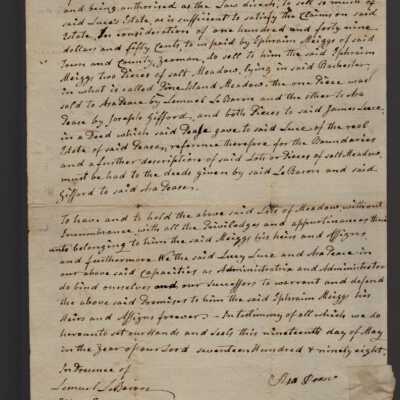 and being authorised as the Law directs, to sell so much of
said Luces Estate, as is sufficient to satisfy the Claims on said
Estate, In consideration of one hundred and forty nine
dollars and fifty Cents, to us paid by Ephraim Meiggs of said
Town and County, Yeoman, do sell to him the said Ephraim
Meiggs two Pieces of salt Meadow, lying in said Rochester
in what is called Pine Island Meadow, the one Piece was
sold to Asa Pease by Lemuel LeBaron and the other to Asa
Pease by Joseph Gifford, and both Pieces to said James Luce,
in a Deed which said Pease gave to said Luce of the real
Estate of said Pease, reference therefore for the Boundaries
and a further description of said Lots or Pieces of salt Meadow,
must be had to the deeds given by said LeBaron and said
Gifford to said Asa Pease.
To have and to hold the above said Lots of Meadow without
Incumbrance with all the Priviledges and appurtinances there
unto belonging to him the said Meiggs his heirs and Assigns
and furthermore We the said Lucy Luce and Asa Pease in
our above said capacities as Administratrix and Administrator
do bind ourselves and our successors to warrant and defend
the above said Premises to him the said Ephraim Meiggs his
Heirs and Assigns forever — In testimony of all which we do
hereunto set our Hands and Seals this nineteenth day of May
in the Year of our Lord seventeen Hundred & ninety eight.
In Presence of
Lemuel LeBaron
Asa Pease